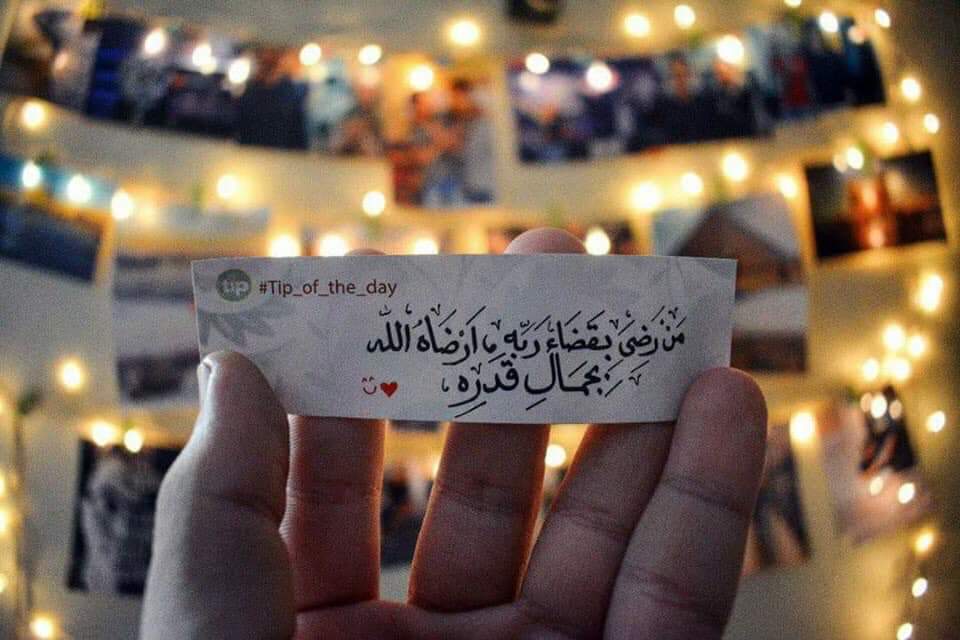 tip #Tip_of_the_day
مَنْ رَضِيَ بِقَضَاءِ رَبِّهِ، أَرْضَاهُ اللّٰه
بِجَمَالِ قَدَرِهِ،